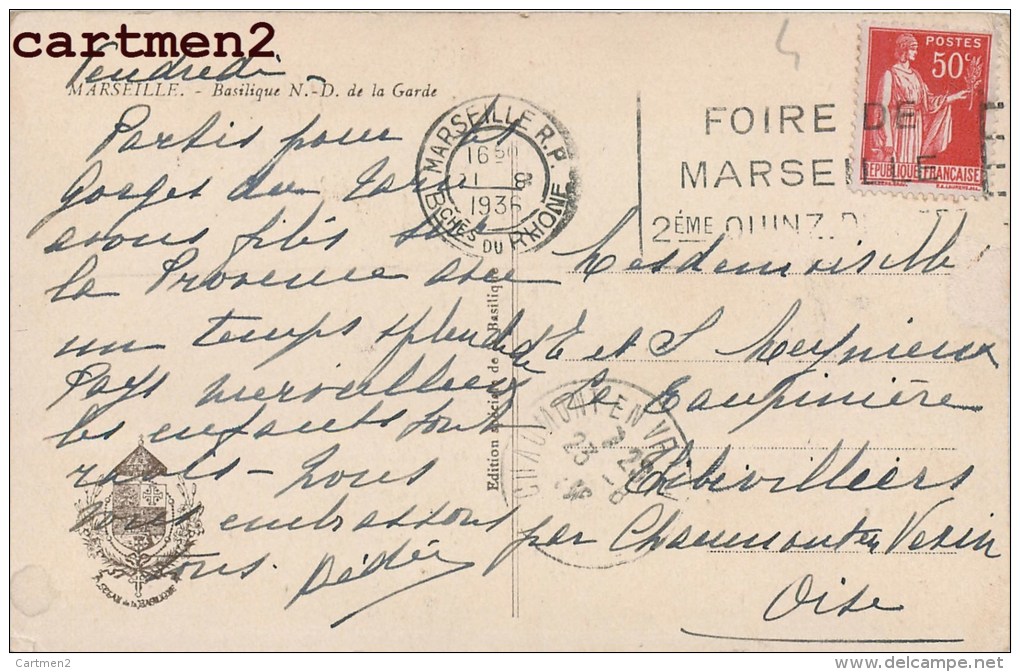 cartmen2
Vendredi
MARSEILLE. - Basilique N.-D. de la Garde
Partis pour les
Gorges du Tarn
avons filés sur
la Provence avec
un temps splendide
Pays merveilleux
les enfants sont
ravis - nous
vous embrassons
tous. Dédée
MARSEILLE R.P.
16 30
21 8
1936
BCHES DU RHONE
FOIRE DE
MARSEILLE
2ÉME QUINZ. D
POSTES
50c
RÉPUBLIQUE FRANÇAISE
Edition spéciale de la Basilique
Mesdemoiselles
E et S Meynieux
La Taupinière
Tibivilliers
par Chaumont en Vexin
Oise
CHAUMONT-EN-VEXIN
23 - 8
36
Cartmen2
www.delcampe.net